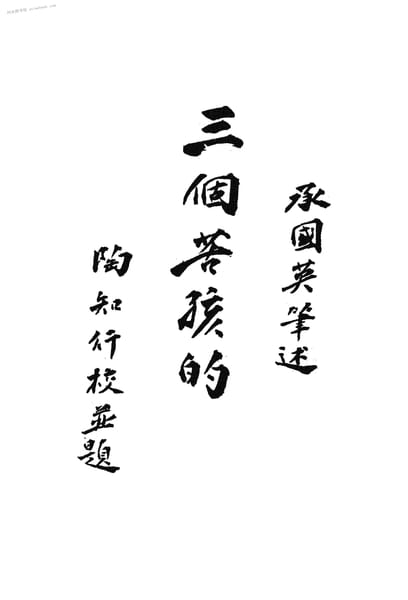 承國英筆述
三個苦孩的
陶知行校並題